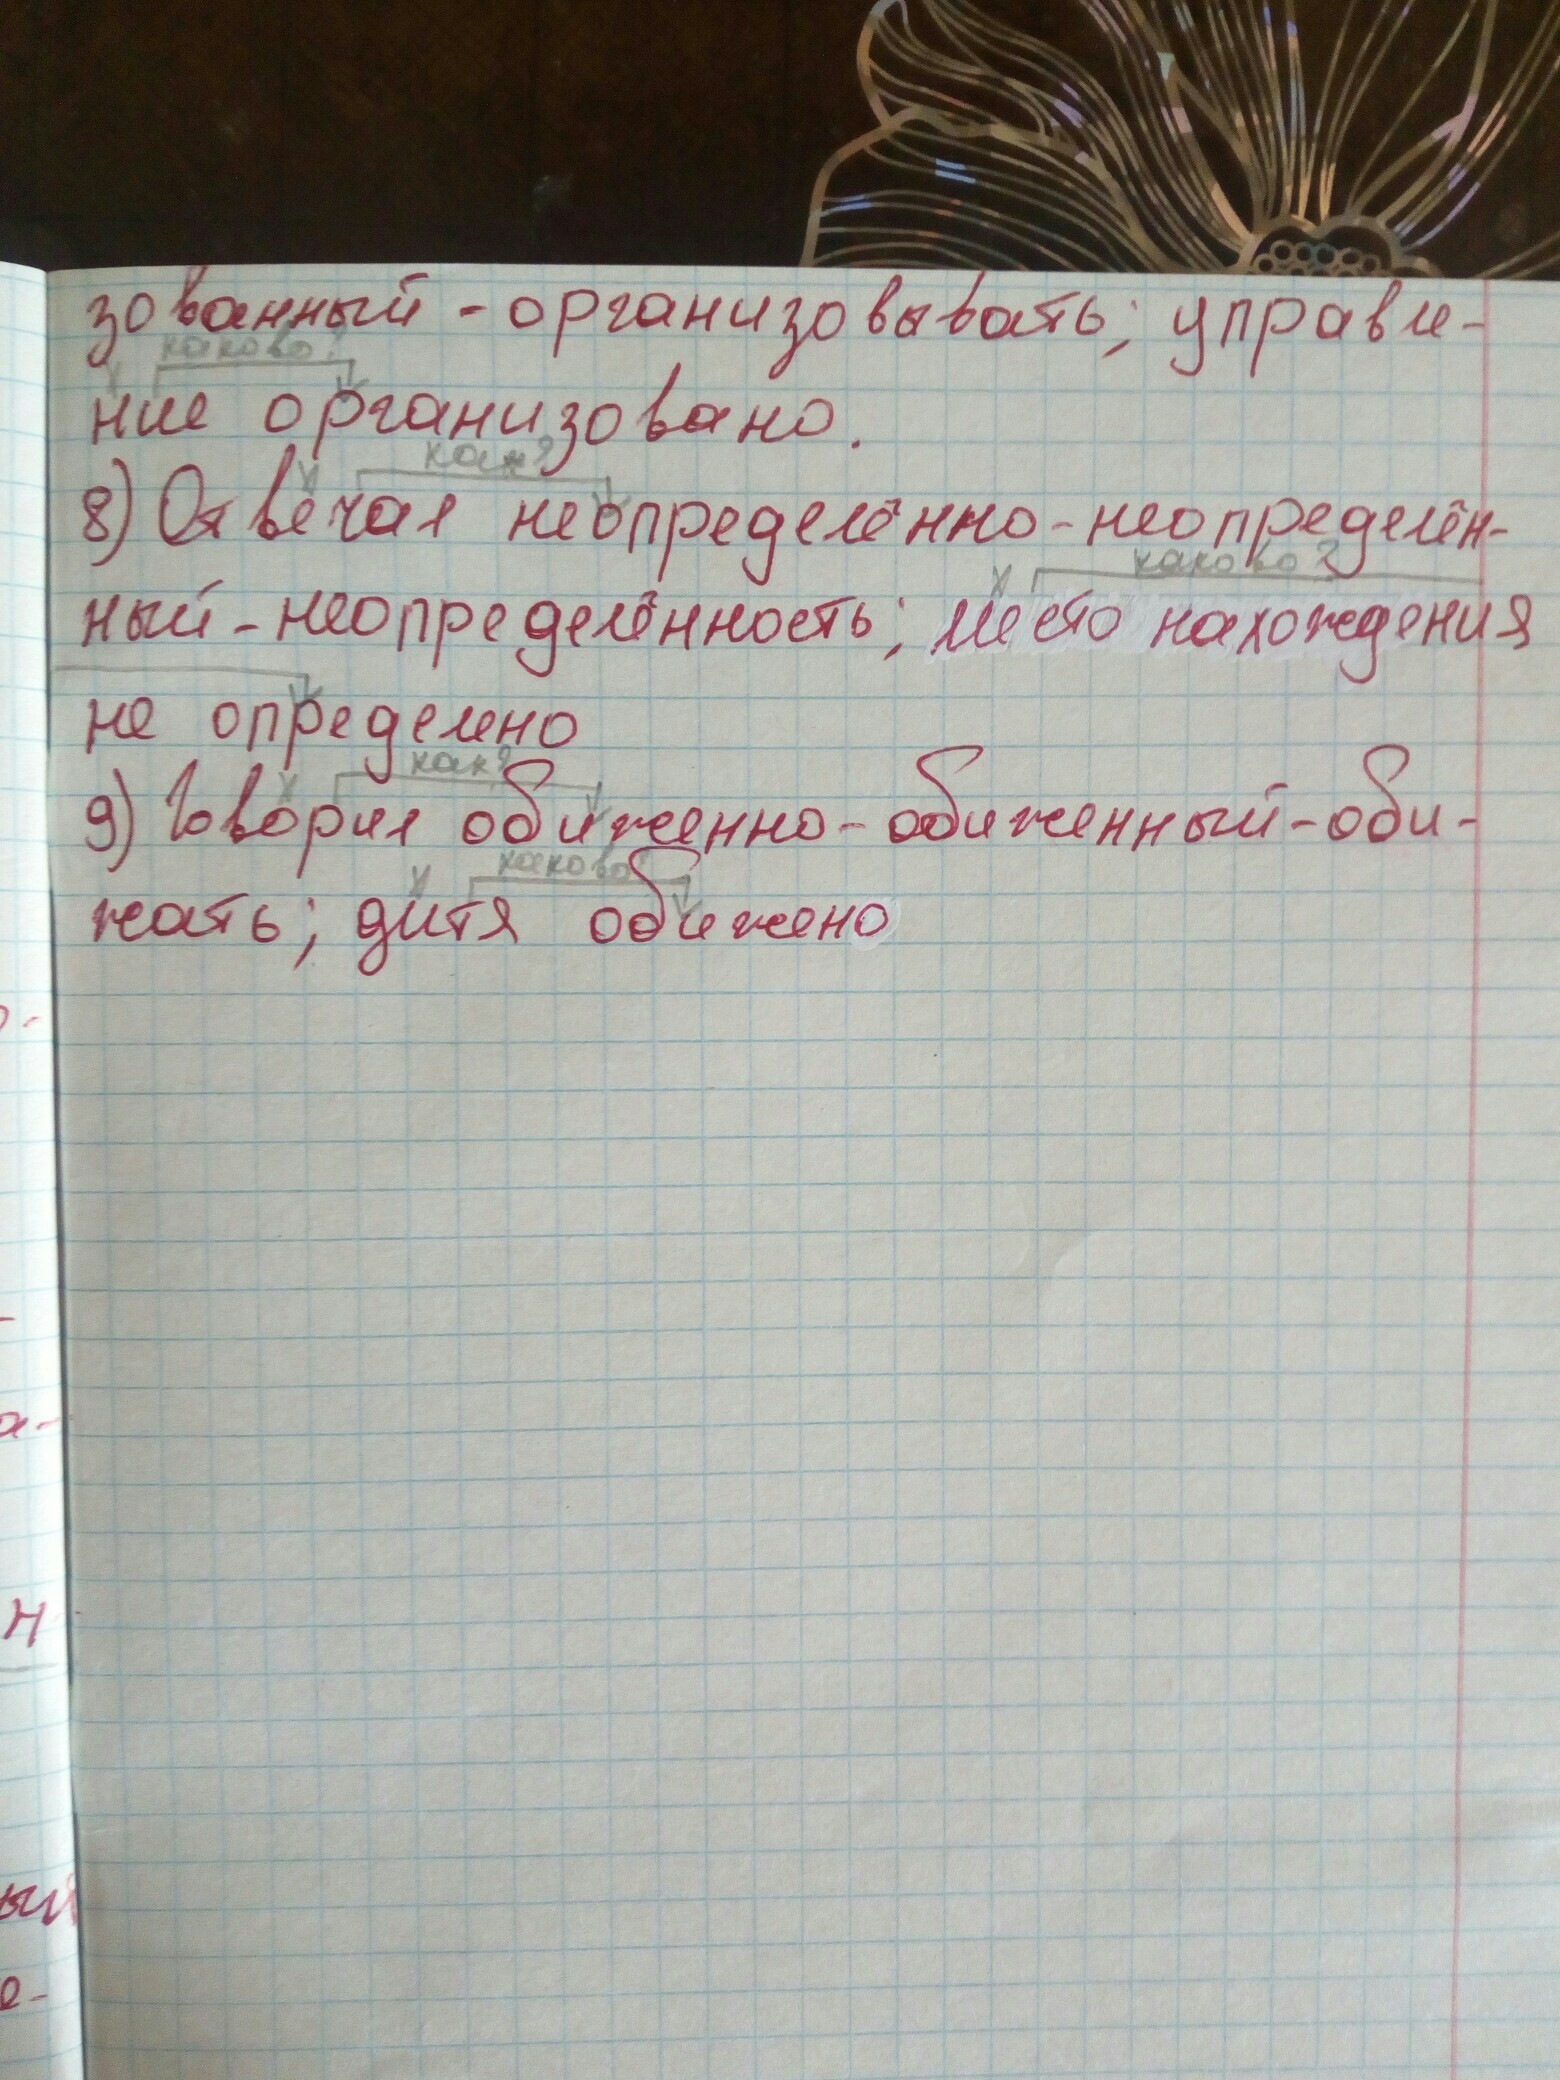 зованный - организовывать; управле-
каково?
ние организовано.
как?
8) Отвечал неопределённо-неопределён-
каково?
ный-неопределённость; место нахождения
не определено
как?
9) Говорил обиженно-обиженный-оби-
каково?
жать; дитя обижено
о-
-
а-
н
ый
е-